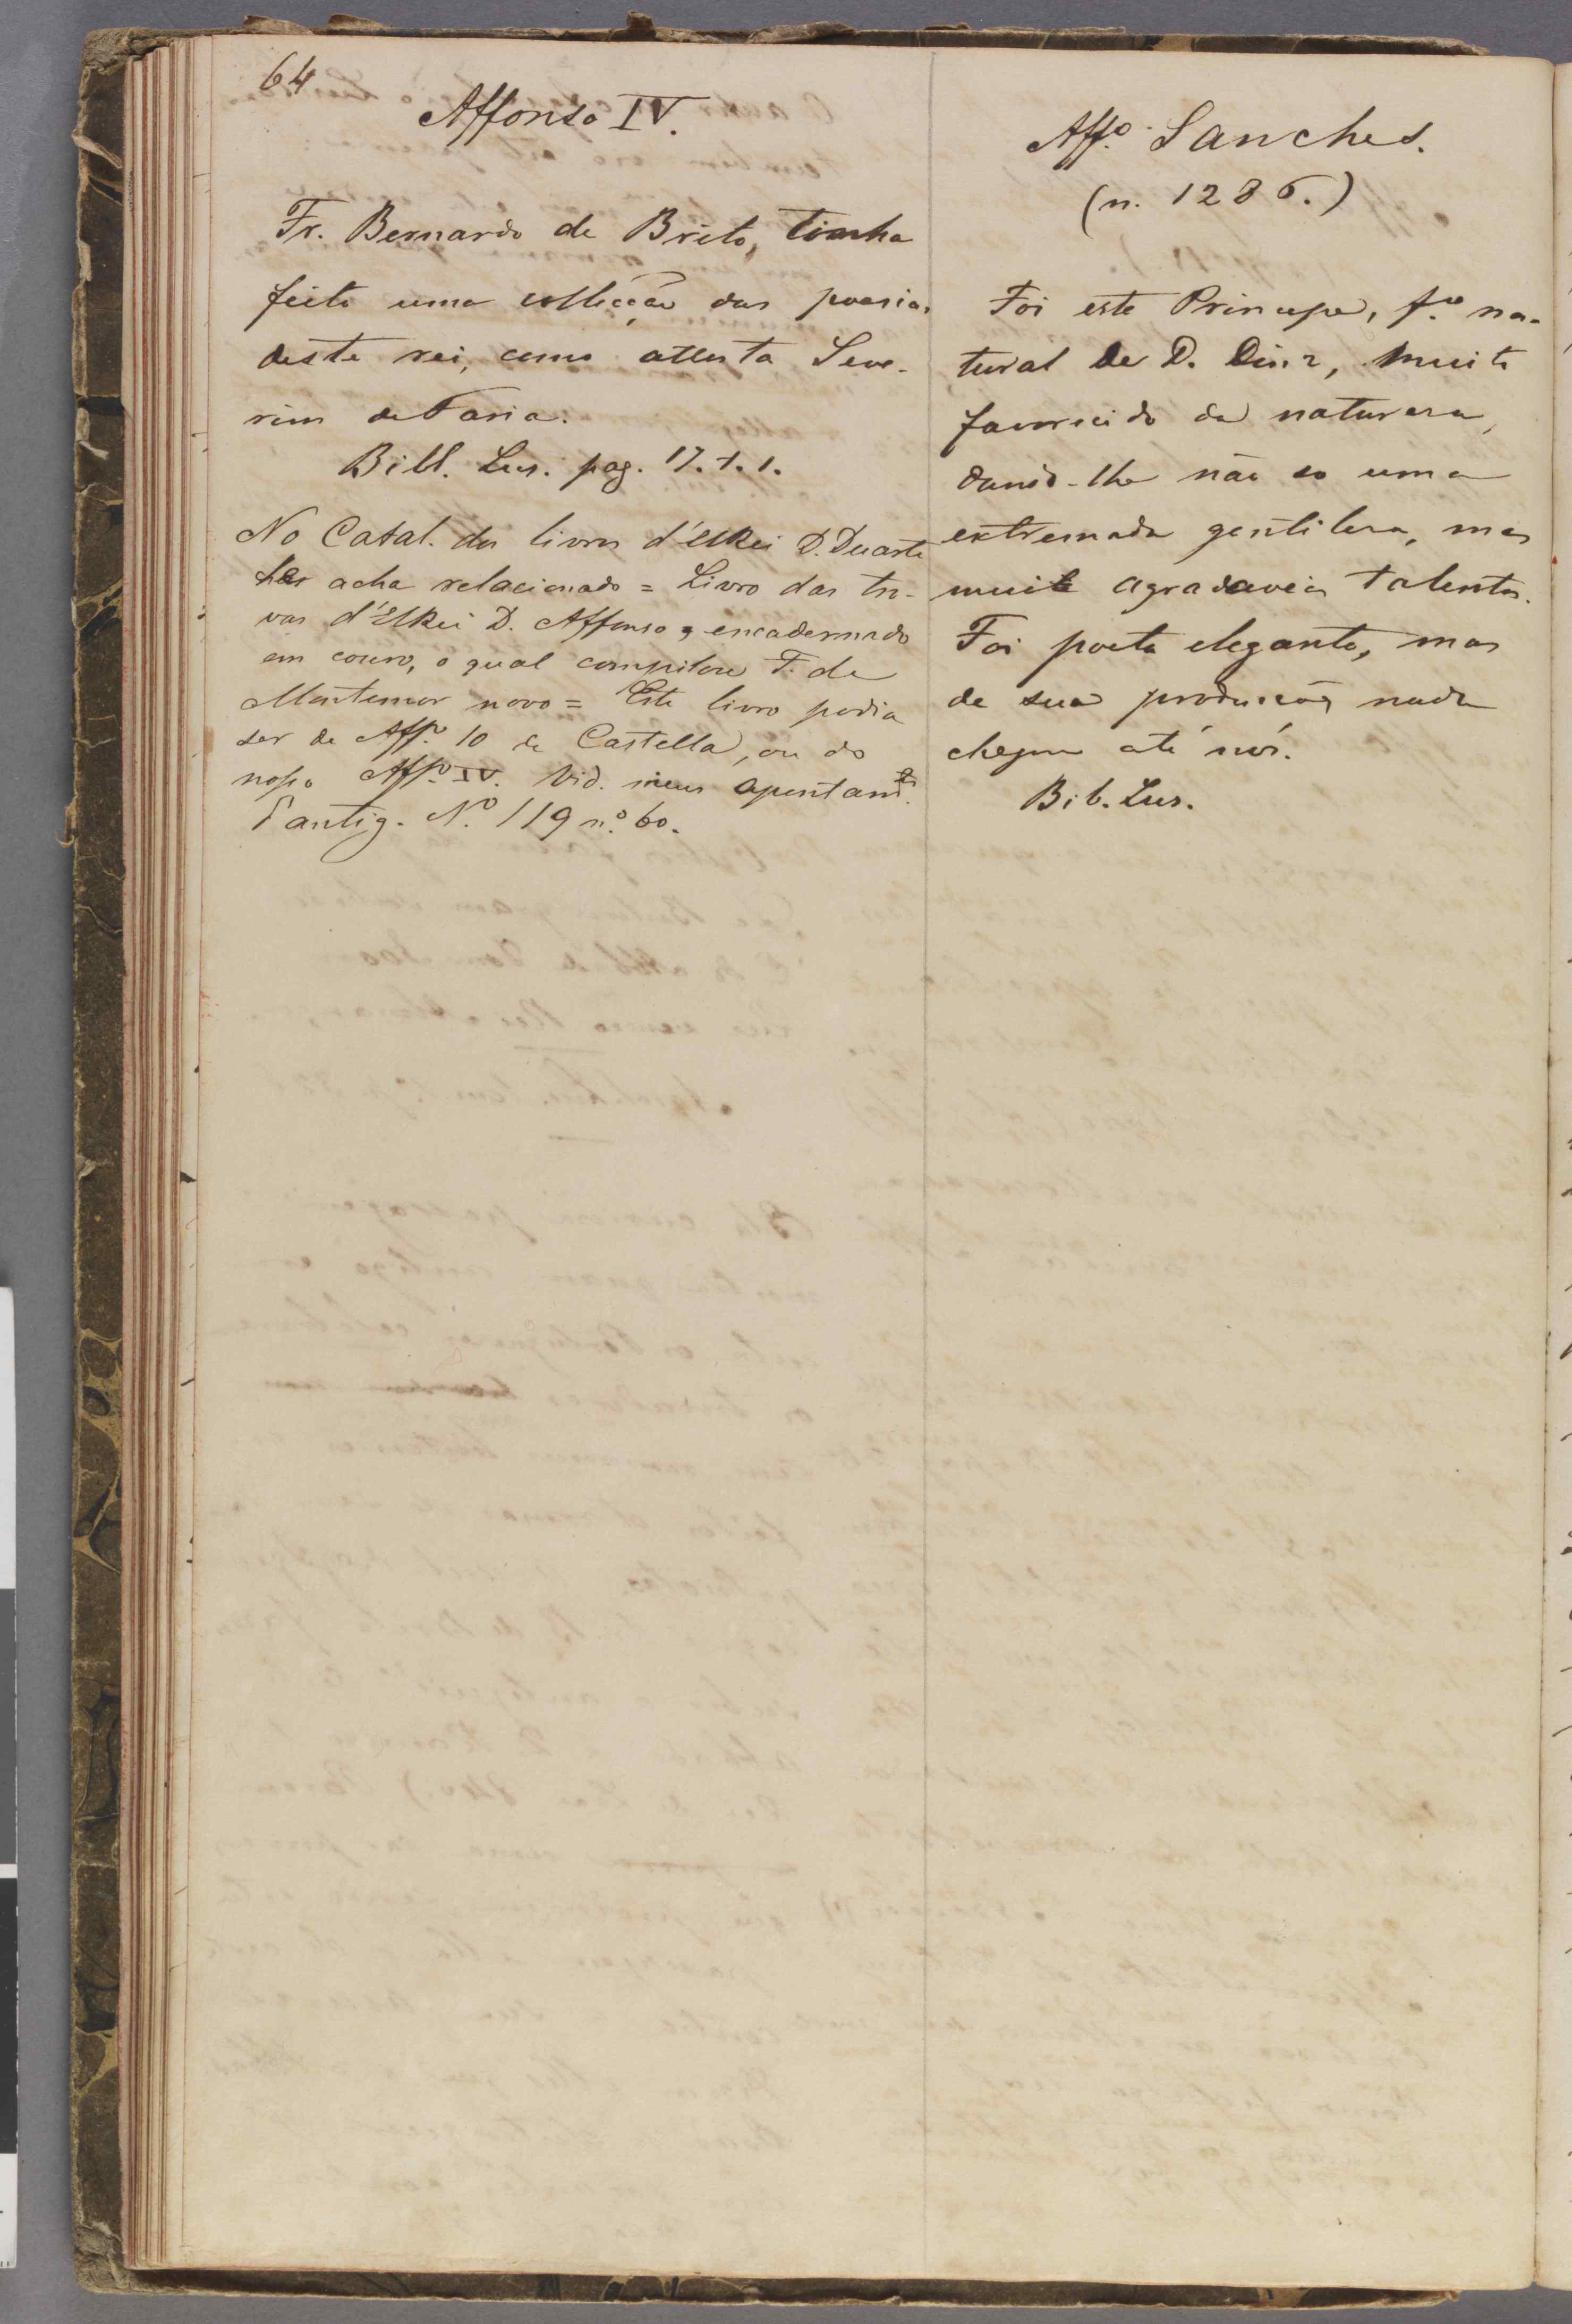 64
Affonso IV.
Fr. Bernardo de Brito, tinha
feito uma collecção das poesias
deste rei, como attesta Seve-
rim de Faria.
Bibl. Lus. pag. 17. t. 1.
No Catal. dos livros d'ElRei D. Duarte
acha relacionado = Livro das tro-
vas d'ElRei D. Affonso, encadernado
em couro, o qual compilou F. de
Montemor novo = Este livro podia
ser de Aff.º 10 de Castella, ou do
nosso Aff.º IV. Vid. meus apontam.tos
d'antig. N.º 119 n.º 60.
Aff.º Sanches.
(n. 1286.)
Foi este Principe, f.º na-
tural de D. Diniz, muito
favorecido da naturesa,
dando-lhe não so uma
extremada gentilesa, mas
muito agradaveis talentos.
Foi poeta elegante, mas
de suas producções nada
chegou até nós.
Bib. Lus.